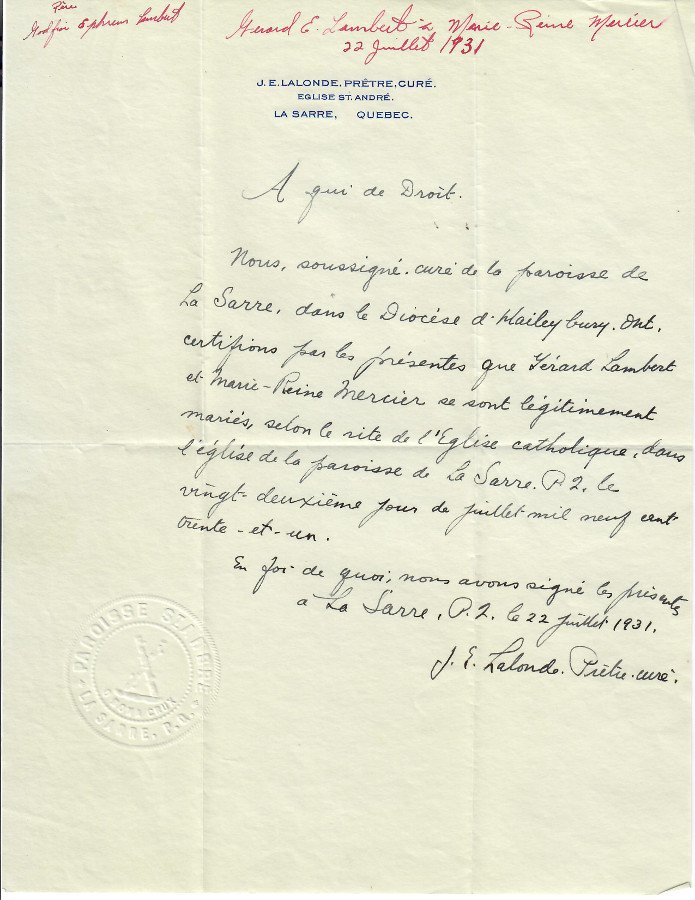 Père
Godfroi Ephrem Lambert
Gerard E. Lambert à Marie-Reine Mercier
22 Juillet 1931
J. E. LALONDE, PRÊTRE, CURÉ.
EGLISE ST. ANDRÉ.
LA SARRE, QUEBEC.
A qui de Droit.
Nous, soussigné, curé de la paroisse de
La Sarre, dans le Diocèse d'Haileybury. Ont.
certifions par les présentes que Gérard Lambert
et Marie-Reine Mercier se sont légitimement
mariés, selon le rite de l'Eglise catholique, dans
l'église de la paroisse de La Sarre. P.Q. le
vingt-deuxième jour de juillet mil neuf cent
trente-et-un.
En foi de quoi, nous avons signé les présentes
a La Sarre, P.Q. le 22 juillet 1931.
J. E. Lalonde. Prêtre-curé.
PAROISSE ST ANDRE
LA SARRE, P.Q.